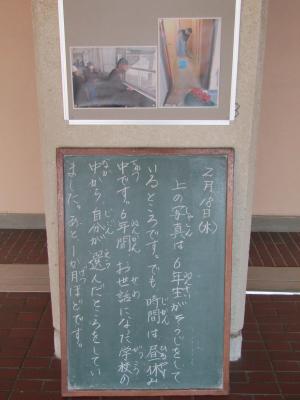 2月18日(水)
上の写真は6年生がそうじをして
いるところです。でも時間は昼休み
中です。6年間お世話になた学校の
中から自分が選んだところをしてい
ました。あと一か月ほどです。